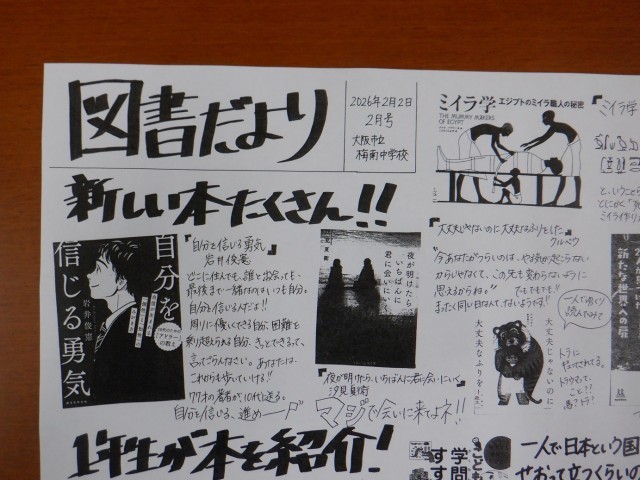 図書だより
2026年2月2日
2月号
大阪市立
梅南中学校
新しい本たくさん!!
自分を
信じる勇気
岩井俊憲
『自分を信じる勇気』
岩井俊憲
どこに住んでも、誰と出会っても、
最後まで一緒なのはいつも自分。
自分を信じるんだよ!!
周りに優しくできる自分、困難を
乗り越えられる自分、きっとできるって、
言ってごらんなさい。あなたは、
これからも歩いていける!!
77才の著者が、10代に送る。
自分を信じる、進めーーダ
夜が明けたら
いちばんに
君に会いにいく
『夜が明けたら、いちばんに君に会いにいく』
汐見夏衛
マジで会いに来てよネ!!
ミイラ学
エジプトのミイラ職人の秘密
THE MUMMY MAKERS
OF EGYPT
『ミイラ学
ということ
とにかく
ミイラ作り
『大丈夫じゃないのに大丈夫なふりをした』
クルベウ
今あなたがつらいのは、やる気が起こらない
からじゃなくて、この先も変わらないように
思えるからね。
でもでもでも!!
まったく同じ日なんて、ないようです!!
大丈夫じゃないのに
大丈夫なふりをした
一人で抱く
読んでみて
トラに
トラウマって、
こと!?
馬?トラ!
新たな世界への扉
1年生が本を紹介!
こども
学問
すす
一人で日本という国
せおって立つくらいの